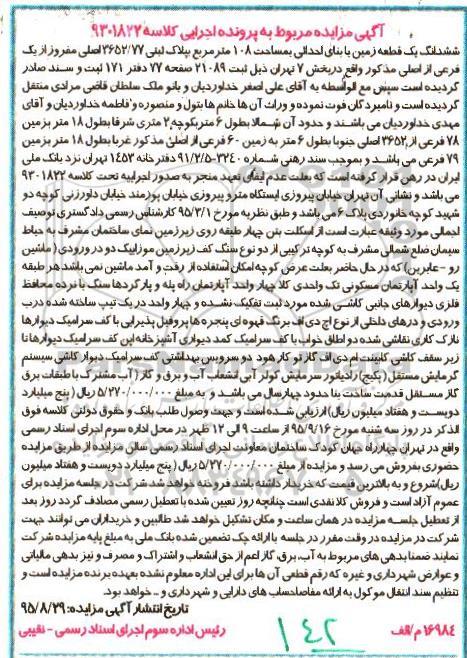 آگهی مزایده مربوط به پرونده اجرایی کلاسه ۹۳۰۱۸۲۲
ششدانگ یک قطعه زمین با بنای احداثی بمساحت ۱۰۸ متر مربع بپلاک ثبتی ۳۶۵۲/۷۷ اصلی مفروز از یک
فرعی از اصلی مذکور واقع در بخش ۷ تهران ذیل ثبت ۲۱۰۸۹ صفحه ۷۷ دفتر ۱۷۱ ثبت و سند صادر
گردیده است سپس مع الواسطه به آقای علی اصغر خداوردیان و بانو ملک سلطان قاضی مرادی منتقل
گردیده است و نامبردگان فوت نموده و وراث آن ها خانم ها بتول و منصوره و فاطمه خداوردیان و آقای
مهدی خداوردیان می باشند و حدود آن شمالا بطول ۶ متر بکوچه ۲ متری شرقا بطول ۱۸ متر بزمین
۷۸ فرعی از ۳۶۵۲ اصلی جنوبا بطول ۶ متر به زمین ۶۰ فرعی از اصلی مذکور غربا بطول ۱۸ متر بزمین
۷۹ فرعی می باشد و بموجب سند رهنی شماره ۳۲۴۰-۹۱/۲/۵ دفترخانه ۱۴۵۳ تهران نزد بانک ملی
ایران در رهن قرار گرفته است که بعلت عدم ایفای تعهد منجر به صدور اجراییه تحت کلاسه ۹۳۰۱۸۲۲
می باشد و نشانی آن تهران خیابان پیروزی ایستگاه مترو پیروزی خیابان پورمند خیابان داورزنی کوچه دو
شهید کوچه خانوردی پلاک ۶ می باشد و طبق نظریه مورخ ۹۵/۳/۱ کارشناس رسمی دادگستری توصیف
اجمالی مورد وثیقه عبارت است از اسکلت بتن چهار طبقه روی زیرزمین نمای ساختمان مشرف به حیاط
سیمان ضلع شمالی مشرف به کوچه ترکیبی از دو نوع سنگ کف زیرزمین موزاییک دو در ورودی ( ماشین
رو - عابرین) که در حال حاضر بعلت عرض کوچه امکان استفاده از رفت و آمد ماشین نمی باشد هر طبقه
یک واحد آپارتمان مسکونی تک واحدی کلا چهار واحد آپارتمان راه پله و پارگردها سنگ با نرده محافظ
فلزی دیوارهای جانبی کاشی شده مورد ثبت تفکیک نشده و چهار واحد در یک تیپ ساخته شده درب
ورودی و درهای داخلی از نوع اچ دی اف برنگ قهوه ای پنجره ها پروفیل پذیرایی با کف سرامیک دیوارها
نازک کاری نقاشی شده دو اطاق خواب با کف سرامیک کمد دیواری آشپزخانه اپن کف سرامیک دیوارها تا
زیر سقف کاشی کابینت ام دی اف گاز تو کار هود دو سرویس بهداشتی کف سرامیک دیوار کاشی سیستم
گرمایش مستقل (پکیج) رادیاتور سرمایش کولر آبی انشعاب آب و برق و گاز (آب مشترک با طبقات برق
گاز مستقل قدمت ساخت بنا حدود چهار سال می باشد و به مبلغ ۵/۲۷۰/۰۰۰/۰۰۰ ریال ( پنج میلیارد
دویست و هفتاد میلیون ریال) ارزیابی شده است و جهت وصول طلب بانک و حقوق دولتی کلاسه فوق
الذکر در روز سه شنبه مورخ ۹۵/۹/۱۶ از ساعت ۹ الی ۱۲ ظهر در محل اداره سوم اجرای اسناد رسمی
واقع در تهران چهارراه جهان کودک ساختمان معاونت اجرای اسناد رسمی سالن مزایده از طریق مزایده
حضوری بفروش می رسد و مزایده از مبلغ ۵/۲۷۰/۰۰۰/۰۰۰ ریال ( پنج میلیارد دویست و هفتاد میلیون
ریال) شروع و به بالاترین قیمت که خریدار داشته باشد فروخته خواهد شد شرکت در جلسه مزایده برای
عموم آزاد است و فروش کلا نقدی است چنانچه روز تعیین شده با تعطیل رسمی مصادف گردد روز بعد
از تعطیل جلسه مزایده در همان ساعت و مکان تشکیل خواهد شد طالبین و خریداران می توانند جهت
شرکت در مزایده در وقت مقرر در جلسه با ارائه چک تضمین شده بانک ملی به مبلغ پایه مزایده شرکت
نمایند ضمنا بدهی های مربوط به آب، برق، گاز اعم از حق انشعاب و اشتراک و مصرف و نیز بدهی مالیاتی
و عوارض شهرداری و غیره که رقم قطعی آن ها برای این اداره معلوم نشده بعهده برنده مزایده است و
تنظیم سند انتقال موکول به ارائه مفاصاحساب های دارایی و شهرداری و .. خواهد بود.
تاریخ انتشار آگهی مزایده: ۹۵/۸/۲۹
۱۶۹۸۴ م/الف
رئیس اداره سوم اجرای اسناد رسمی - نقیبی
۱۴۲